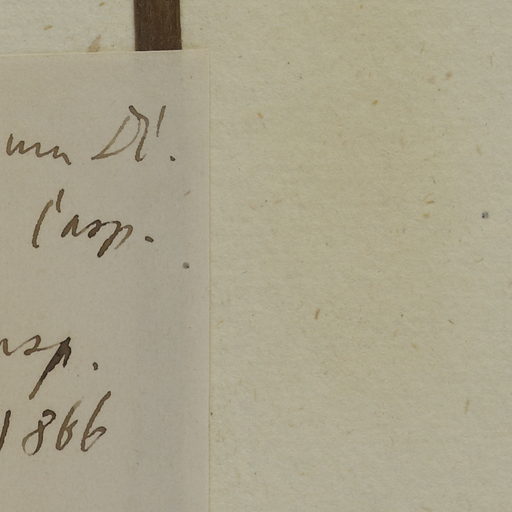 um DC.
Casp.
asp.
1866